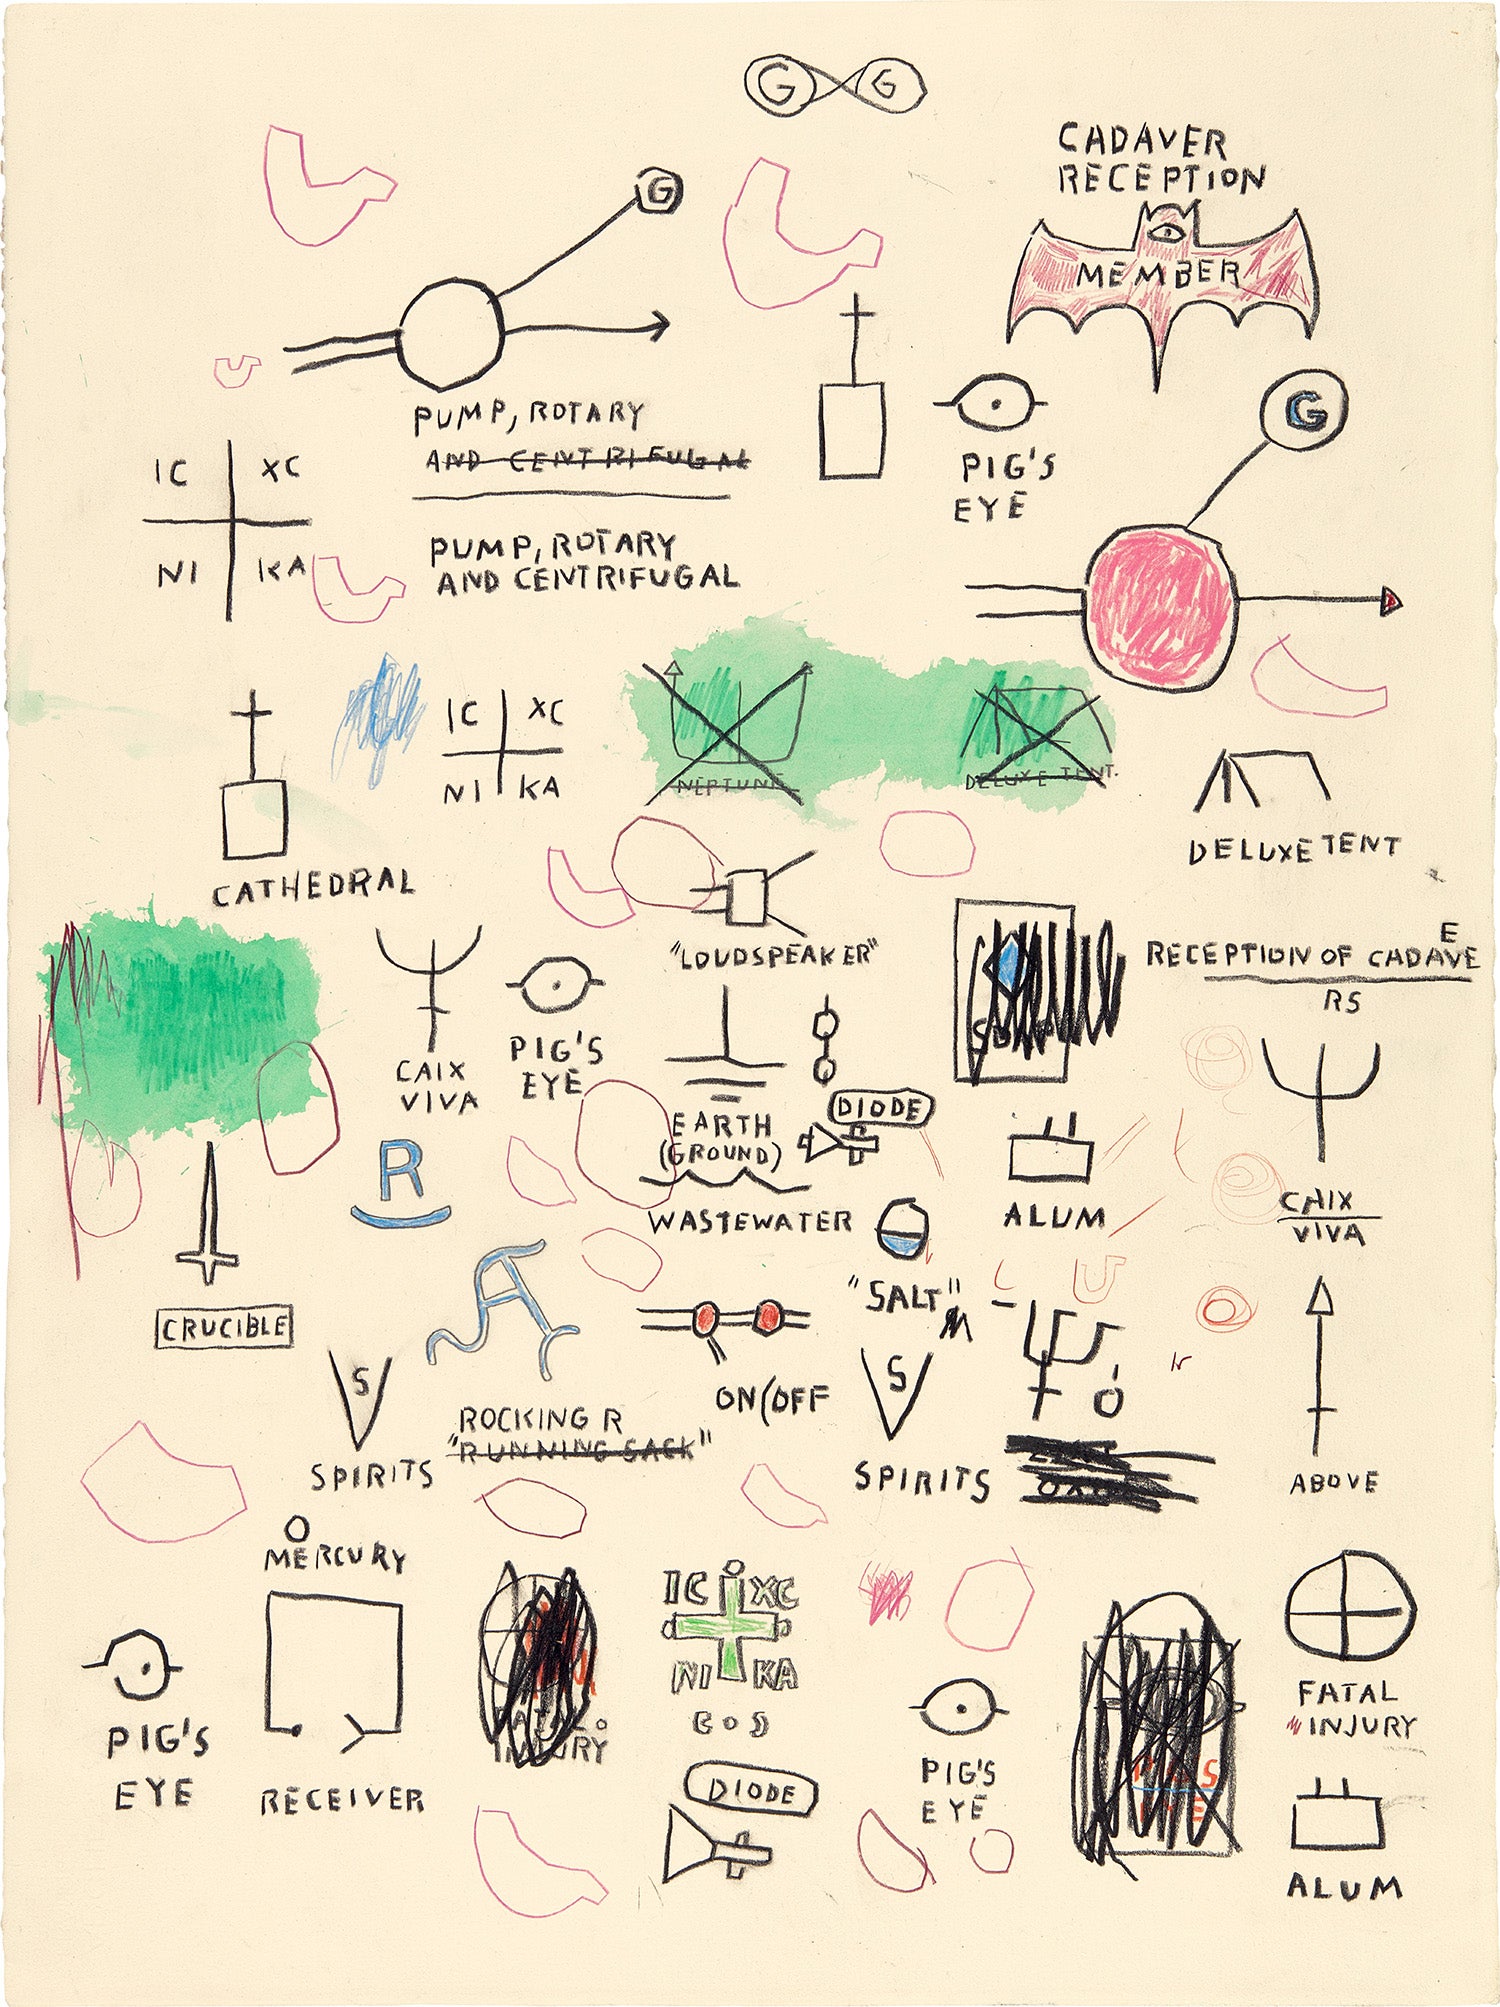 G G
CADAVER
RECEPTION
MEMBER
G
PUMP, ROTARY
AND CENTRIFUGAL
PUMP, ROTARY
AND CENTRIFUGAL
IC XC
NI KA
PIG'S
EYE
G
CATHEDRAL
IC XC
NI KA
NEPTUNE
DELUXE TENT.
DELUXE TENT
"LOUDSPEAKER"
E
RECEPTION OF CADAVE
RS
CAIX
VIVA
PIG'S
EYE
EARTH
(GROUND)
DIODE
WASTEWATER
ALUM
CAIX
VIVA
CRUCIBLE
R
"SALT"
M
S
SPIRITS
ROCKING R
"RUNNING SACK"
ON(OFF
S
SPIRITS
ABOVE
MERCURY
PIG'S
EYE
RECEIVER
FATAL
INJURY
IC XC
NI KA
DIODE
PIG'S
EYE
PIG'S
EYE
FATAL
INJURY
ALUM